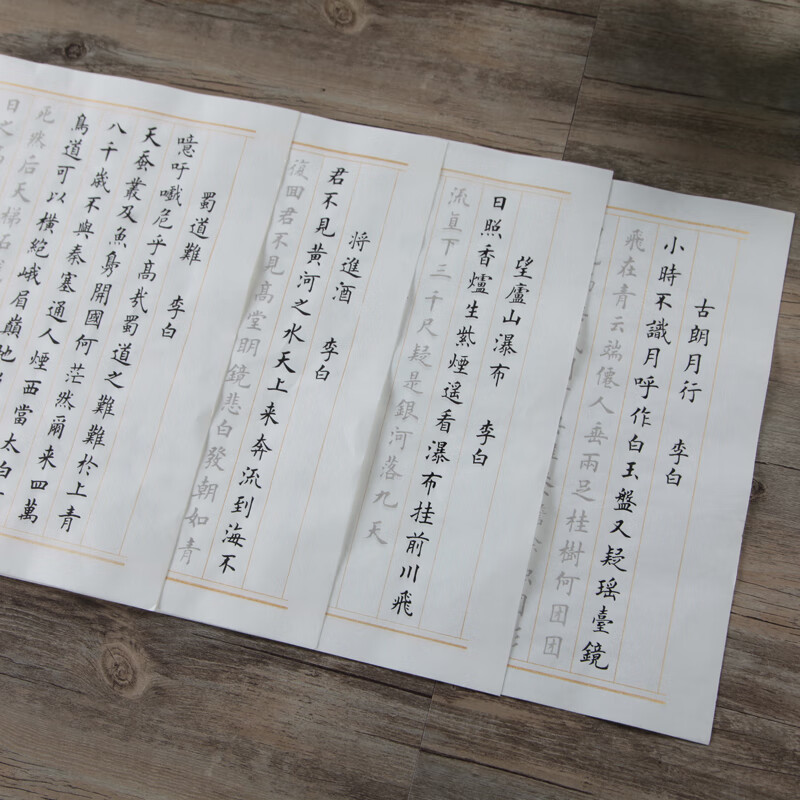 古朗月行 李白
小時不識月呼作白玉盤又疑瑶臺鏡
飛在青云端僊人垂兩足桂樹何团团
望廬山瀑布 李白
日照香爐生紫煙遥看瀑布挂前川飛
流直下三千尺疑是銀河落九天
将進酒 李白
君不見黄河之水天上来奔流到海不
復回君不見高堂明鏡悲白發朝如青
蜀道難 李白
噫吁嚱危乎高哉蜀道之難難於上青
天蚕叢及魚鳧開國何茫然爾来四萬
八千歲不與秦塞通人煙西當太白
鳥道可以橫絕峨眉巔地
然后天梯石
日之